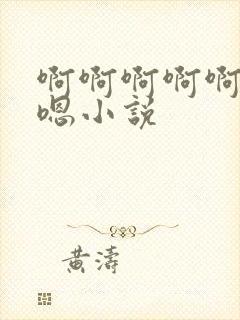 啊啊啊啊啊
嗯小说
黄涛